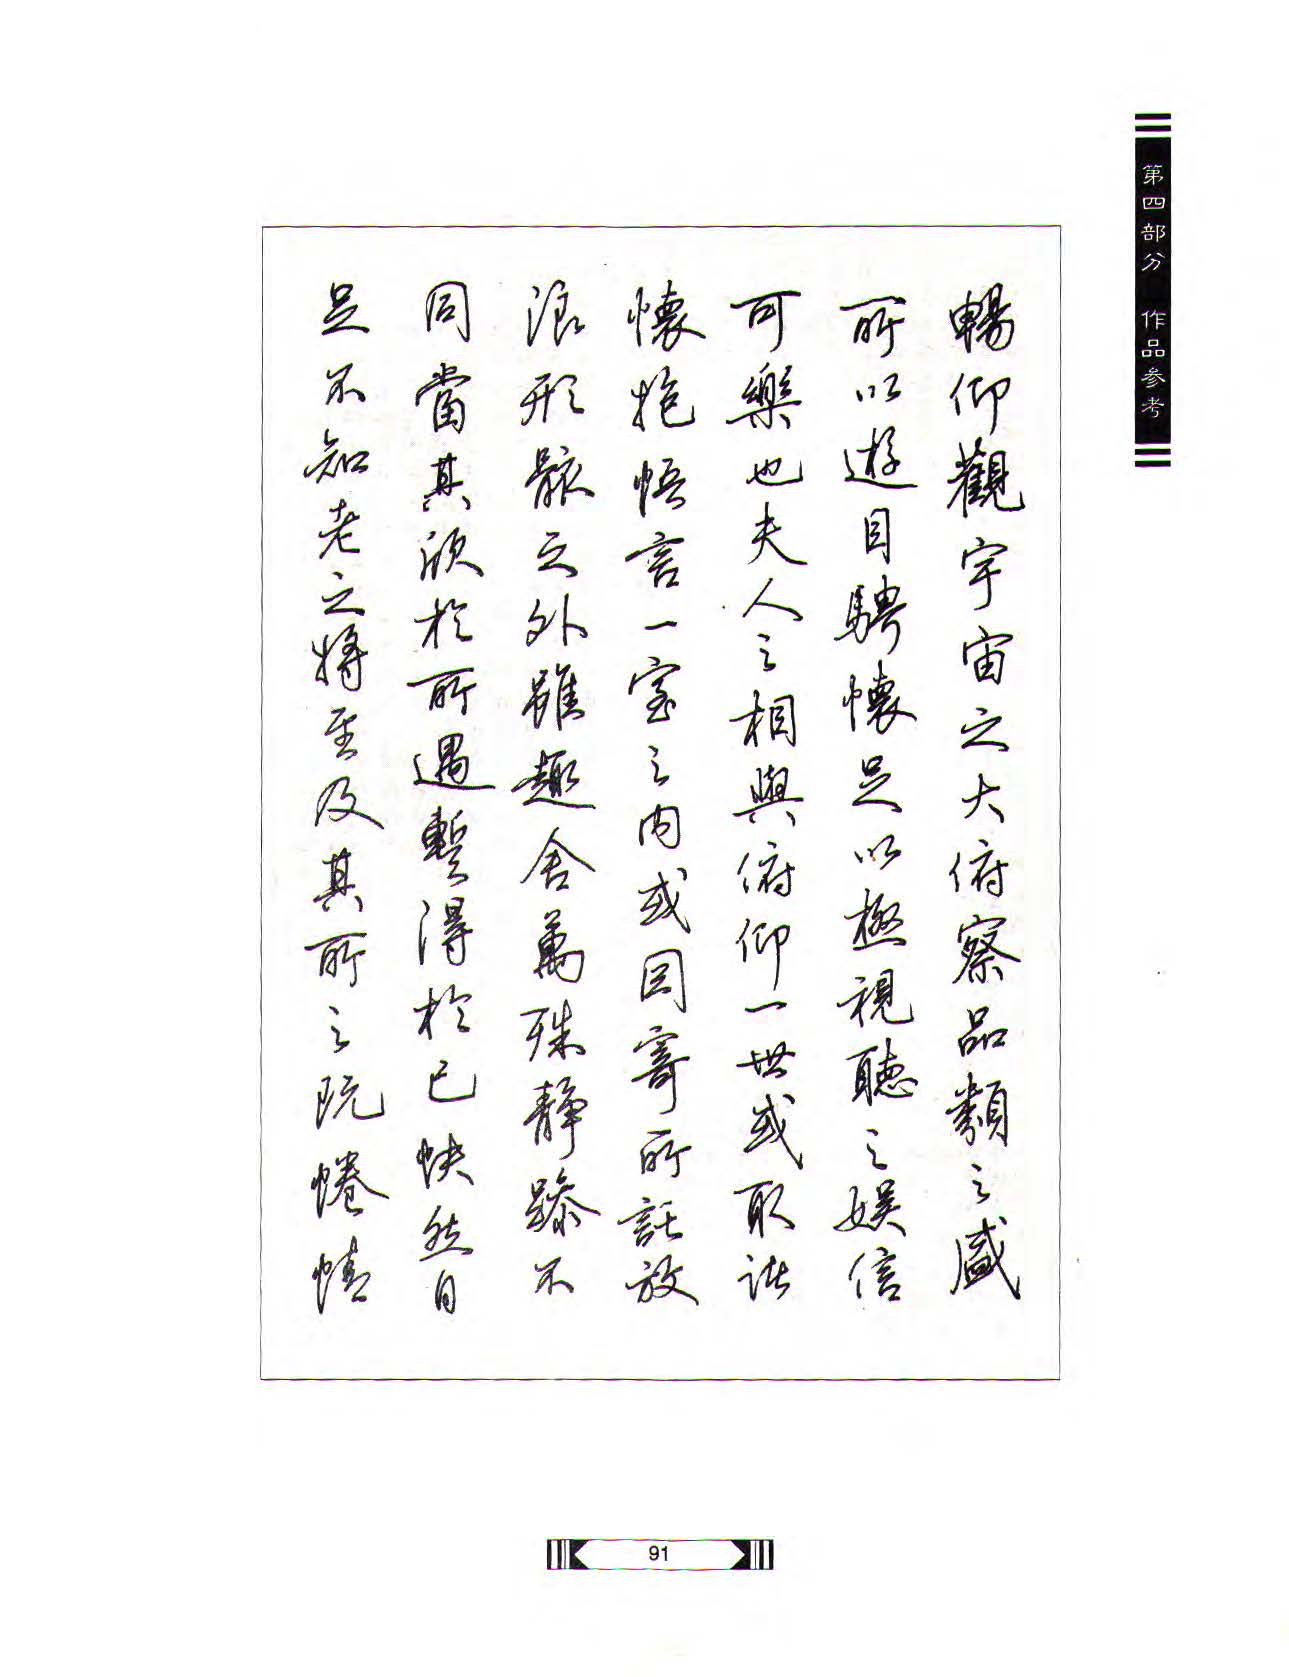 第四部分 作品参考
暢仰觀宇宙之大俯察品類之盛
所以遊目騁懷足以極視聽之娱信
可樂也夫人之相與俯仰一世或取諸
懷抱悟言一室之内或因寄所託放
浪形骸之外雖趣舍萬殊静躁不
同當其欣於所遇暫得於己快然自
足不知老之將至及其所之既惓情
91